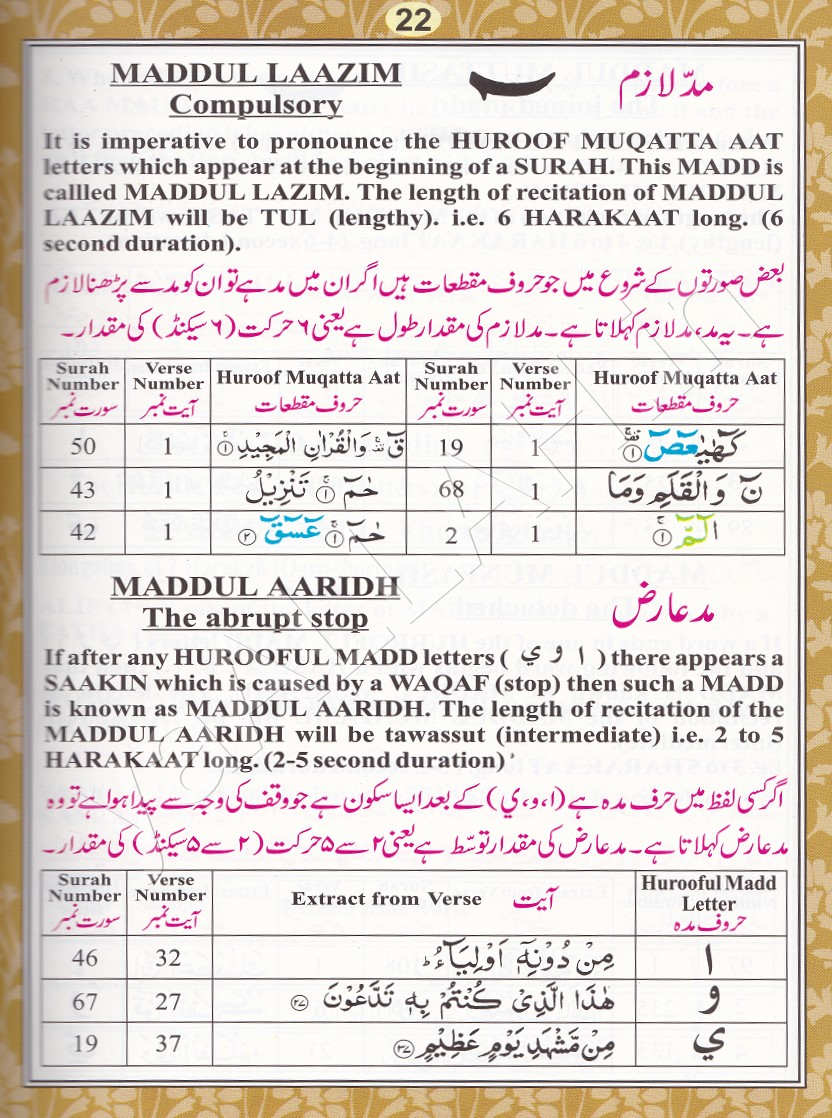 22
MADDUL LAAZIM
Compulsory
مدّ لازم
It is imperative to pronounce the HUROOF MUQATTA AAT
letters which appear at the beginning of a SURAH. This MADD is
callled MADDUL LAZIM. The length of recitation of MADDUL
LAAZIM will be TUL (lengthy). i.e. 6 HARAKAAT long. (6
second duration).
بعض صورتوں کے شروع میں جو حروف مقطعات ہیں اگر ان میں مد ہے تو ان کو مد سے پڑھنا لازم
ہے۔ یہ مد، مد لازم کہلاتا ہے۔ مد لازم کی مقدار طول ہے یعنی ۶ حرکت (۶ سیکنڈ) کی مقدار۔
Surah Number سورت نمبر | Verse Number آیت نمبر | Huroof Muqatta Aat حروف مقطعات | Surah Number سورت نمبر | Verse Number آیت نمبر | Huroof Muqatta Aat حروف مقطعات
50 | 1 | قٓ ۟ۚ وَالْقُرْاٰنِ الْمَجِيْدِ ۝۱ | 19 | 1 | كٓهٰيٰعٓصٓ ۝۱
43 | 1 | حٰمٓ ۝۱ تَنْزِيْلُ | 68 | 1 | نٓ وَالْقَلَمِ وَمَا
42 | 1 | حٰمٓ ۝۱ عٓسٓقٓ ۝۲ | 2 | 1 | الٓمّٓ ۝۱
MADDUL AARIDH
The abrupt stop
مد عارض
If after any HUROOFUL MADD letters ( ا و ي ) there appears a
SAAKIN which is caused by a WAQAF (stop) then such a MADD
is known as MADDUL AARIDH. The length of recitation of the
MADDUL AARIDH will be tawassut (intermediate) i.e. 2 to 5
HARAKAAT long. (2-5 second duration)
اگر کسی لفظ میں حرف مدہ ہے (ا، و، ي) کے بعد ایسا سکون ہے جو وقف کی وجہ سے پیدا ہوا ہے تو وہ
مد عارض کہلاتا ہے۔ مد عارض کی مقدار توسّط ہے یعنی ۲ سے ۵ حرکت (۲ سے ۵ سیکنڈ) کی مقدار۔
Surah Number سورت نمبر | Verse Number آیت نمبر | Extract from Verse آیت | Hurooful Madd Letter حروف مدہ
46 | 32 | مِنْ دُوْنِهٖٓ اَوْلِيَآءُ ؕ | ا
67 | 27 | هٰذَا الَّذِيْ كُنْتُمْ بِهٖ تَدَّعُوْنَ ۝۲۷ | و
19 | 37 | مِنْ مَّشْهَدِ يَوْمٍ عَظِيْمٍ ۝۳۷ | ي